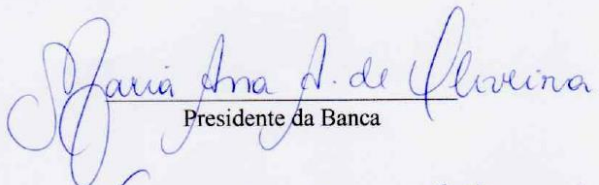 Maria Ana A. de Oliveira
Presidente da Banca